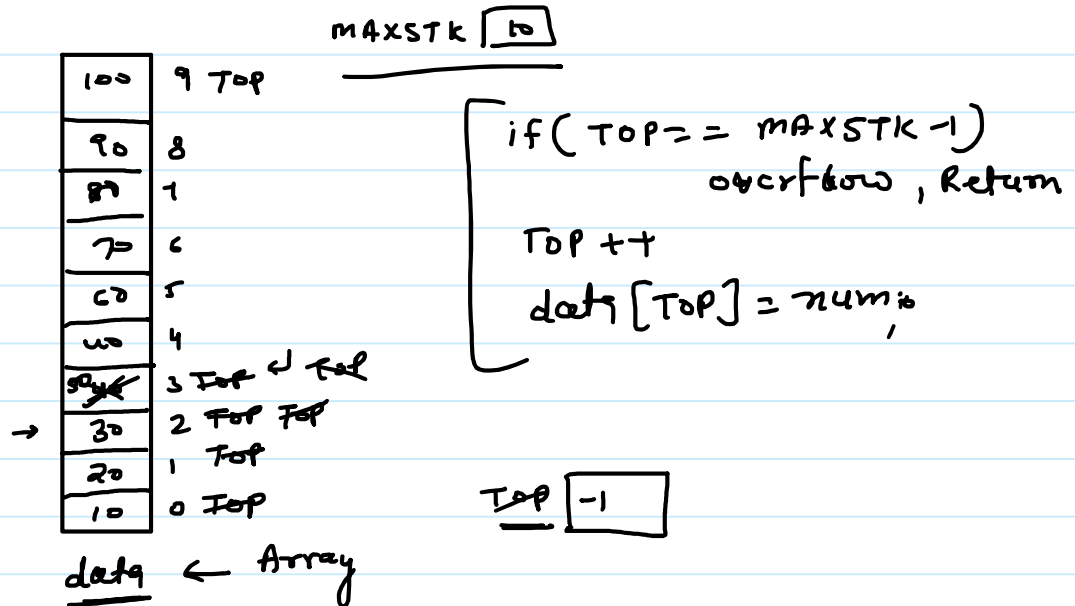 MAXSTK 10
100 9 TOP
90 8
80 7
70 6
60 5
40 4
50 3 TOP ↲ TOP
→ 30 2 TOP TOP
20 1 TOP
10 0 TOP
data ← Array
if( TOP== MAXSTK-1)
overflow, Return
TOP ++
data [TOP] = num;
TOP -1